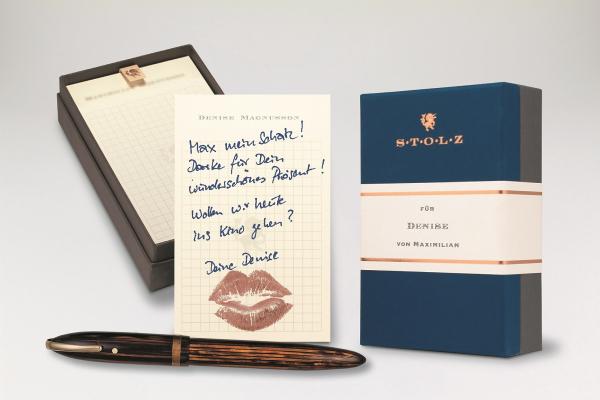 DENISE MAGNUSSON
Max mein Schatz!
Danke für Dein
wunderschönes Präsent!
Wollen wir heute
ins Kino gehen?
Deine Denise
S·T·O·L·Z
FÜR
DENISE
VON MAXIMILIAN